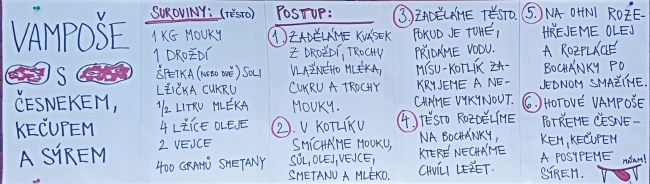 VAMPOŠE
S
ČESNEKEM,
KEČUPEM
A SÝREM
SUROVINY: (TĚSTO)
1 KG MOUKY
1 DROŽDÍ
ŠPETKA (NEBO DVĚ) SOLI
LŽIČKA CUKRU
1/2 LITRU MLÉKA
4 LŽÍCE OLEJE
2 VEJCE
400 GRAMŮ SMETANY
POSTUP:
1. ZADĚLÁME KVÁSEK
Z DROŽDÍ, TROCHY
VLAŽNÉHO MLÉKA,
CUKRU A TROCHY
MOUKY.
2. V KOTLÍKU
SMÍCHÁME MOUKU,
SŮL, OLEJ, VEJCE,
SMETANU A MLÉKO.
3. ZADĚLÁME TĚSTO.
POKUD JE TUHÉ,
PŘIDÁME VODU.
MÍSU-KOTLÍK ZA-
KRYJEME A NE-
CHÁME VYKYNOUT.
4. TĚSTO ROZDĚLÍME
NA BOCHÁNKY,
KTERÉ NECHÁME
CHVÍLI LEŽET.
5. NA OHNI ROZE-
HŘEJEME OLEJ
A ROZPLÁCLÉ
BOCHÁNKY PO
JEDNOM SMAŽÍME.
6. HOTOVÉ VAMPOŠE
POTŘEME ČESNE-
KEM, KEČUPEM
A POSYPEME
SÝREM.
MŇAM!